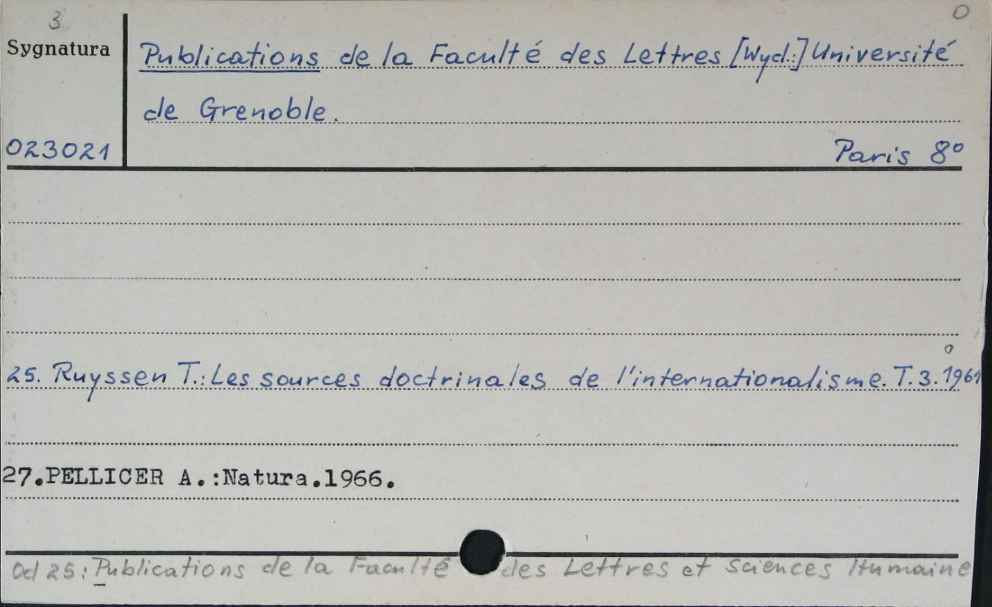 3
0
Sygnatura
Publications de la Faculté des Lettres [Wyd.:] Université
de Grenoble.
023021
Paris 8°
25. Ruyssen T.: Les sources doctrinales de l'internationalisme. T. 3. 1961
27.PELLICER A.:Natura.1966.
Od 25: Publications de la Faculté des Lettres et Sciences Humaine